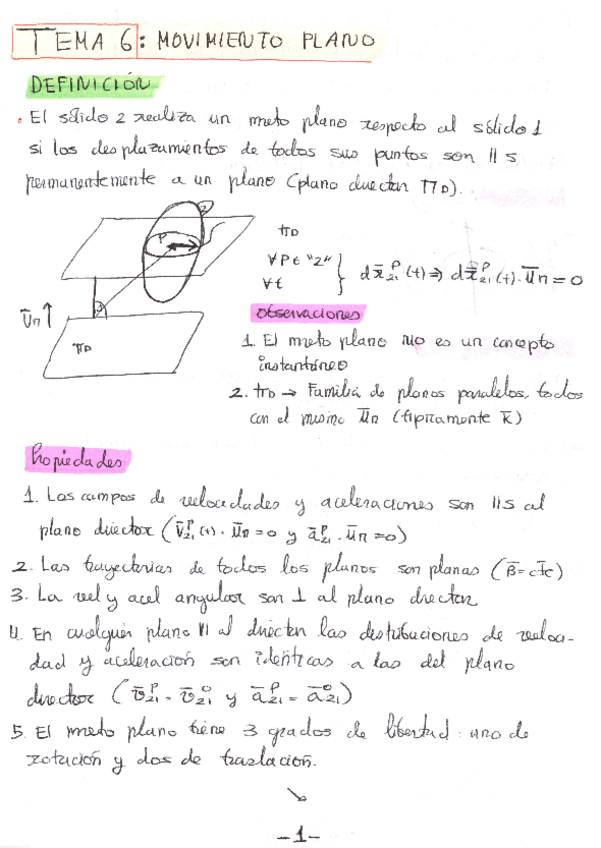 TEMA 6: MOVIMIENTO PLANO
DEFINICIÓN
• El sólido 2 realiza un mvto plano respecto al sólido 1
si los desplazamientos de todos sus puntos son || s
permanentemente a un plano (plano director ΠD).
2
P
πD
∀P∈ "2"
∀t
} dx̄₂₁ᴾ(t) ⇒ dx̄₂₁ᴾ(t)·ūn = 0
ūn ↑
πD
Observaciones
1. El mvto plano NO es un concepto
instantáneo
2. πD → Familia de planos paralelos, todos
con el mismo ūn (típicamente k̄)
Propiedades
1. Los campos de velocidades y aceleraciones son ||s al
plano director (v̄₂₁ᴾ(t)·ūn = 0 y ā₂₁ᴾ·ūn = 0)
2. Las trayectorias de todos los planos son planas (B̄ = cte)
3. La vel y acel angular son ⊥ al plano director
4. En cualquier plano || al director las distribuciones de veloci-
dad y aceleración son idénticas a las del plano
director (v̄₂₁ᴾ = v̄₂₁ᴼ y ā₂₁ᴾ = ā₂₁ᴼ)
5. El mvto plano tiene 3 grados de libertad: uno de
rotación y dos de traslación.
↘
-1-